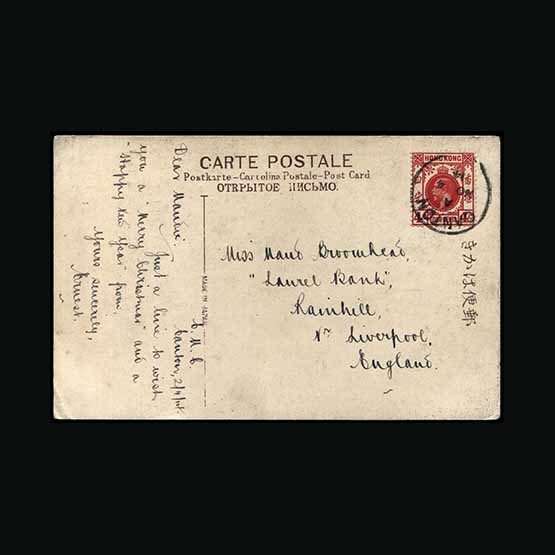 CARTE POSTALE
Postkarte-Cartolina Postale-Post Card
ОТКРЫТОЕ ПИСЬМО.
MADE IN JAPAN
HONGKONG
CANTON
郵便はかき
Miss Maud Broomhead,
"Laurel Bank",
Rainhill,
Nr Liverpool,
England.
Canton, 2/11/
Dear Maudie,
Just a line to wish
you a "Merry Christmas" and a
"Happy New Year" from
Yours sincerely,
Ernest.